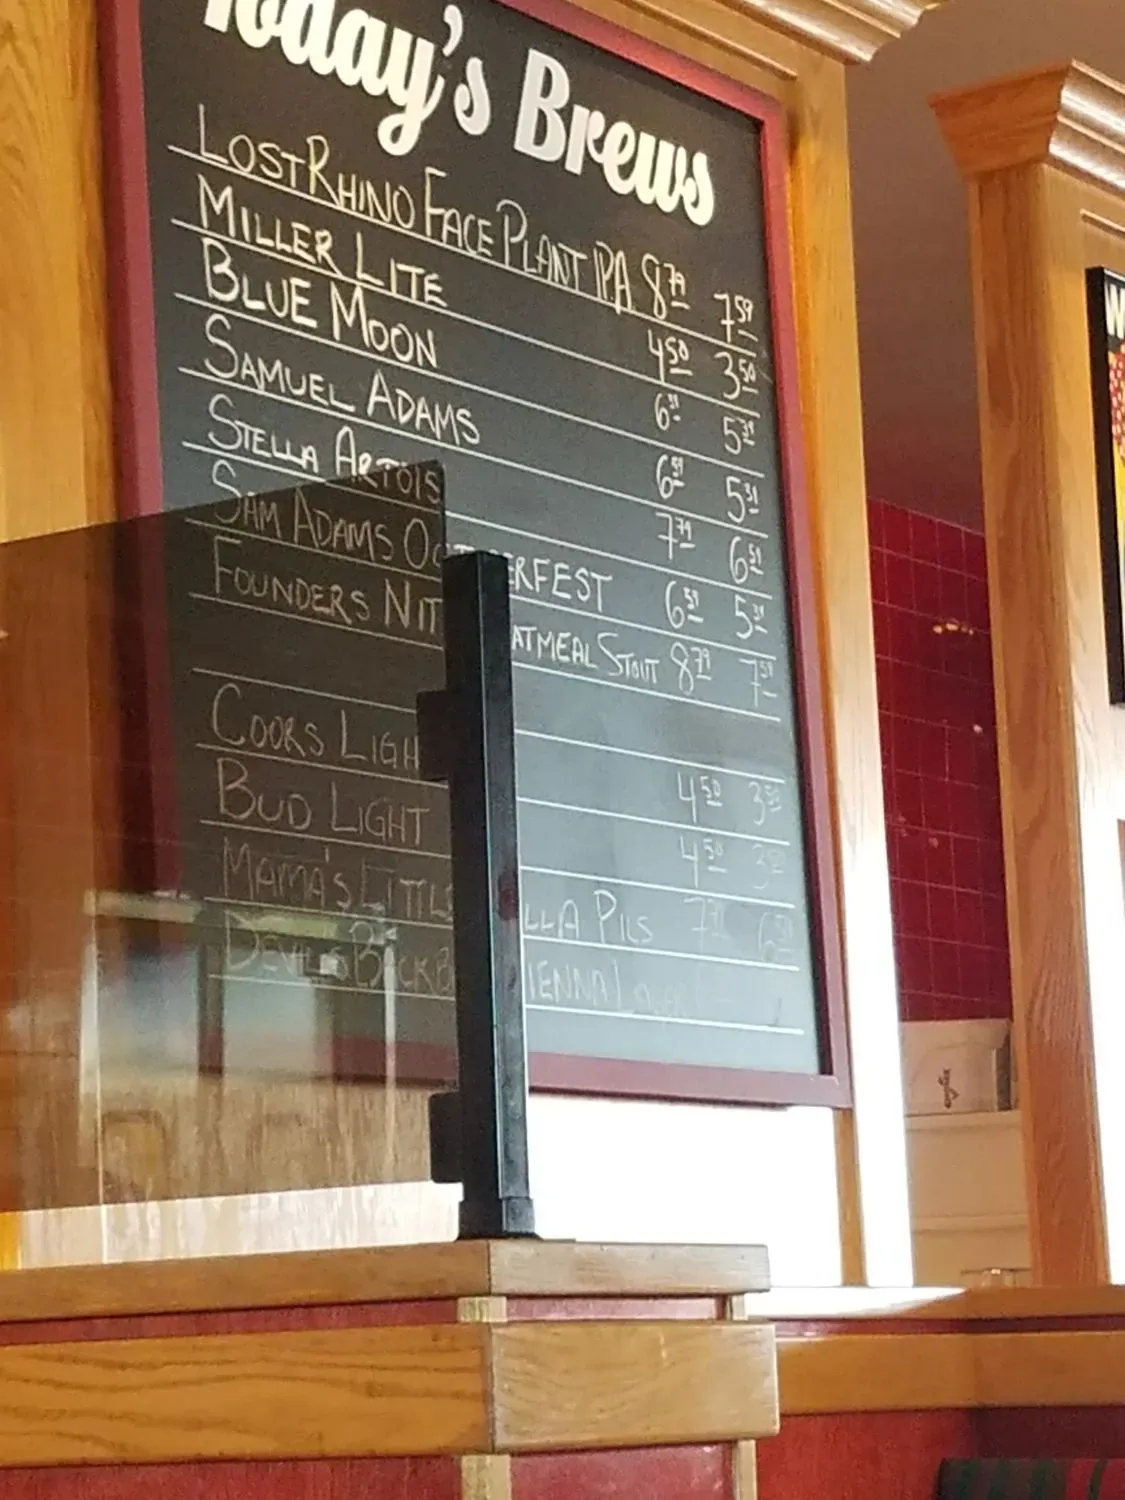 Today's Brews
LOST RHINO FACE PLANT IPA 8.79 7.59
MILLER LITE 4.50 3.50
BLUE MOON 5.39
SAMUEL ADAMS 6.59 5.39
STELLA ARTOIS 7.79 6.59
SAM ADAMS OCT ERFEST 6.59 5.39
FOUNDERS NIT ATMEAL STOUT 8.79 7.59
COORS LIGH 4.50 3.50
BUD LIGHT 4.50
MAMA'S LITTLE LLA PILS
DEVILS BACKB IENNA